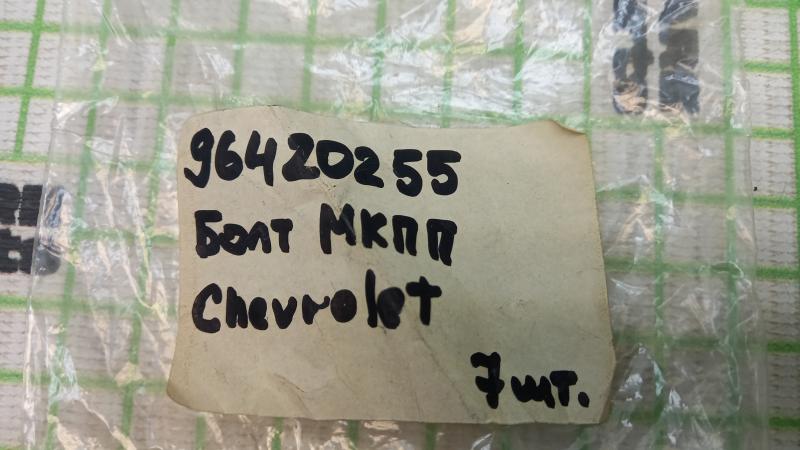 96420255
Болт МКПП
Chevrolet
7 шт.